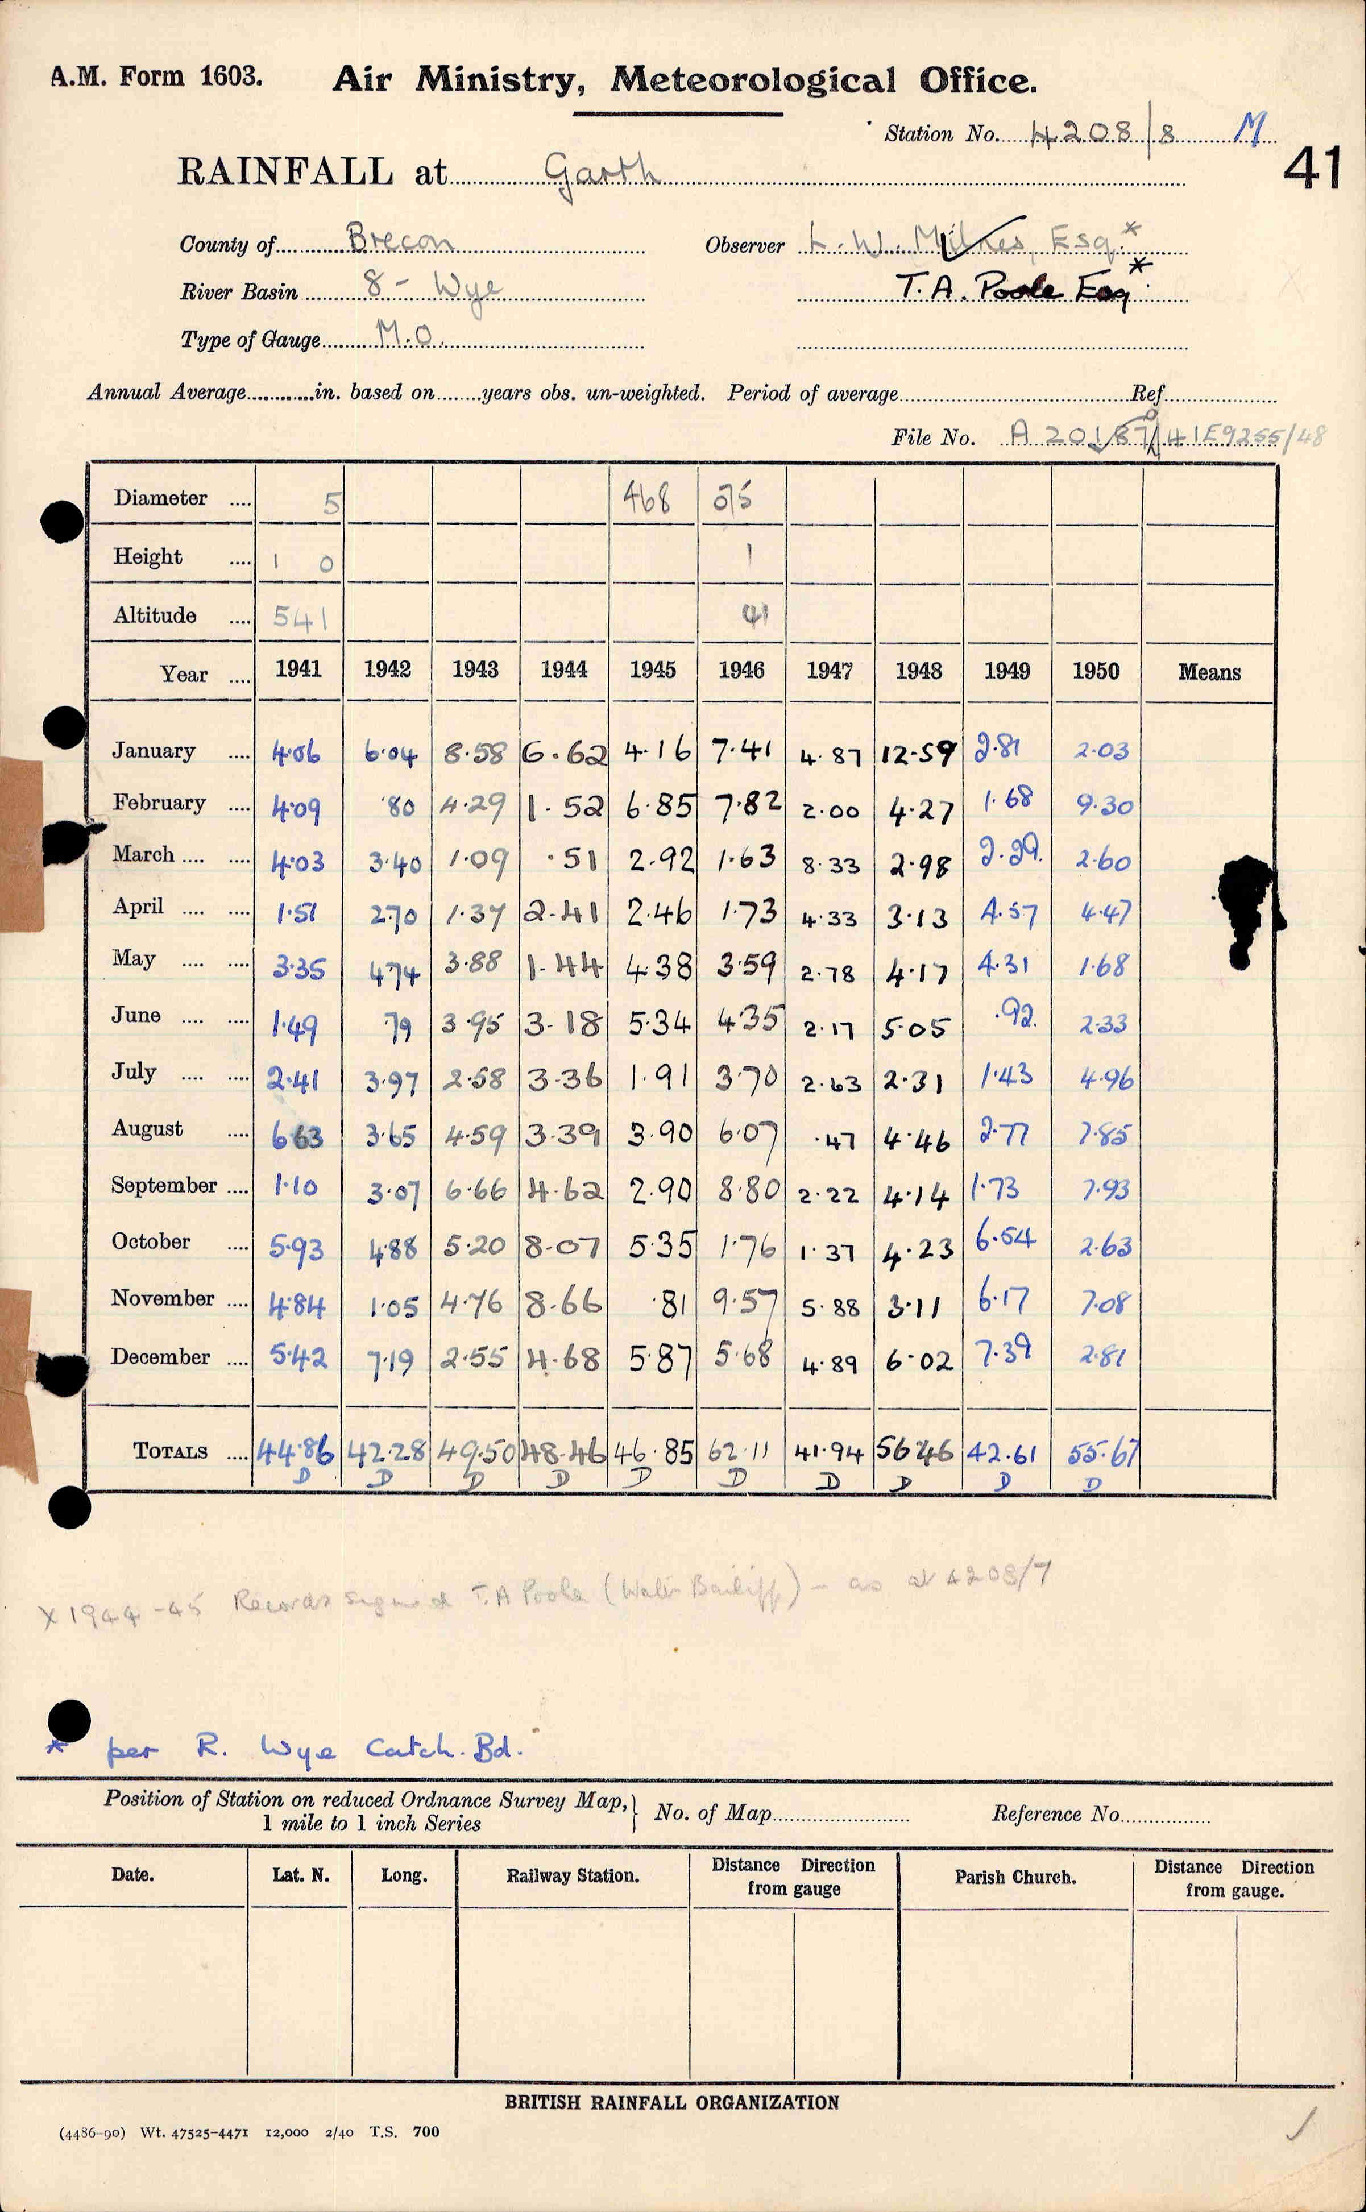 A.M. Form 1603. Air Ministry, Meteorological Office.
Station No. 4208/8 M
41
RAINFALL at Garth
County of Brecon Observer L. W. Milnes, Esq.*
River Basin 8 - Wye T. A. Poole Esq*
Type of Gauge M.O.
Annual Average in. based on years obs. un-weighted. Period of average Ref.
File No. A 20187/41 E9255/48
Diameter .... 5 468 075
Height .... 1 0 1
Altitude .... 541 41
Year .... 1941 1942 1943 1944 1945 1946 1947 1948 1949 1950 Means
January .... 4.06 6.04 8.58 6.62 4.16 7.41 4.87 12.59 2.81 2.03
February .... 4.09 .80 4.29 1.52 6.85 7.82 2.00 4.27 1.68 9.30
March .... .... 4.03 3.40 1.09 .51 2.92 1.63 8.33 2.98 2.29 2.60
April .... .... 1.51 2.70 1.37 2.41 2.46 1.73 4.33 3.13 4.57 4.47
May .... .... 3.35 4.74 3.88 1.44 4.38 3.59 2.78 4.17 4.31 1.68
June .... .... 1.49 .79 3.95 3.18 5.34 4.35 2.17 5.05 .92 2.33
July .... .... 2.41 3.97 2.58 3.36 1.91 3.70 2.63 2.31 1.43 4.96
August .... 6.63 3.65 4.59 3.39 3.90 6.07 .47 4.46 2.77 7.85
September .... 1.10 3.07 6.66 4.62 2.90 8.80 2.22 4.14 1.73 7.93
October .... 5.93 4.88 5.20 8.07 5.35 1.76 1.37 4.23 6.54 2.63
November .... 4.84 1.05 4.76 8.66 .81 9.57 5.88 3.11 6.17 7.08
December .... 5.42 7.19 2.55 4.68 5.87 5.68 4.89 6.02 7.39 2.81
TOTALS .... 44.86 42.28 49.50 48.46 46.85 62.11 41.94 56.46 42.61 55.67
D D D D D D D D D D
X 1944-45 Records signed T.A Poole (Water Bailiff) - as at 4208/7
* per R. Wye Catch. Bd.
Position of Station on reduced Ordnance Survey Map, 1 mile to 1 inch Series } No. of Map Reference No.
Date. Lat. N. Long. Railway Station. Distance Direction from gauge Parish Church. Distance Direction from gauge.
BRITISH RAINFALL ORGANIZATION
(4486-90) Wt. 47525-4471 12,000 2/40 T.S. 700